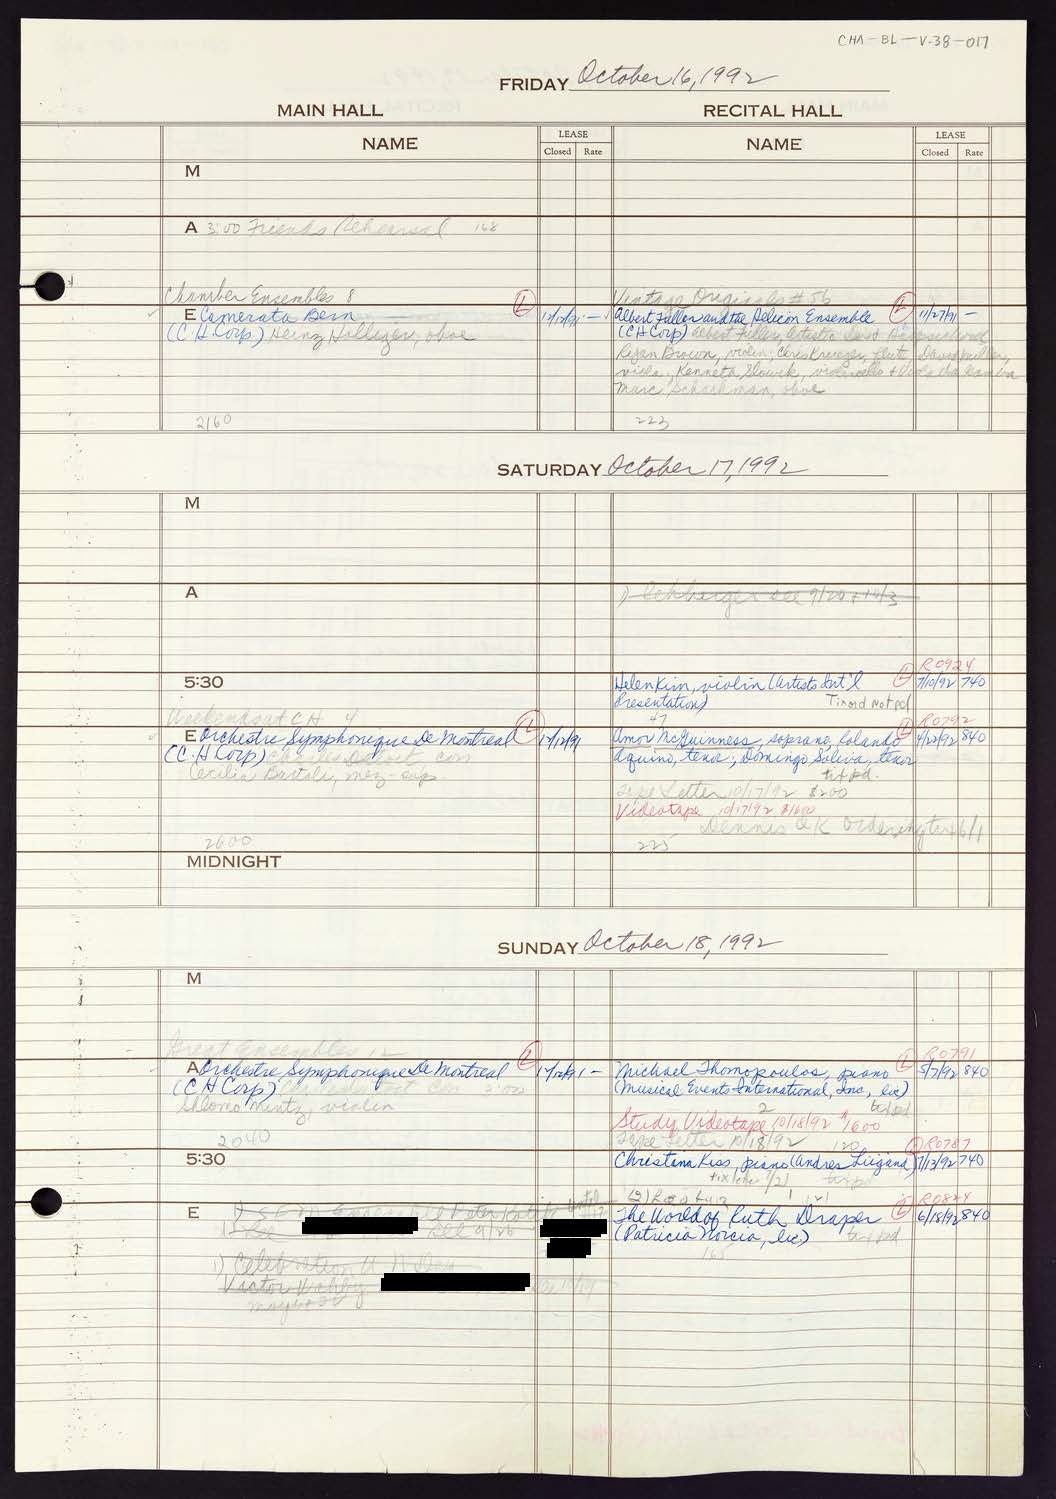 CHA-BL-V.38-017
FRIDAY October 16, 1992
MAIN HALL
RECITAL HALL
NAME
LEASE
Closed Rate
NAME
LEASE
Closed Rate
M
A 3:00 Friends Rehearsal 168
Chamber Ensembles 8
E Camerata Bern L 12/12/91 -
(CH Corp) Heinz Holliger, oboe
2160
Vintage Originals #56
Albert Fuller and the Helicon Ensemble L 11/27/91 -
(CH Corp) Albert Fuller, Artistic and Harpsichord
Ryan Brown, violin; Chris Krueger, flute David Miller,
viola, Kenneth Slowik, violoncello + Viola da Gamba
Marc Schachman, oboe
223
SATURDAY October 17, 1992
M
A
1) see 9/20 + 10/3
5:30
R0924
Helen Kim, violin (Artists Int'l L 7/10/92 740
Presentation) Tix ord not pd
47
Weekends at CH 4
E Orchestre Symphonique De Montreal L 12/12/91
(C.H Corp) Charles Dutoit, con
Cecilia Bartoli, mez-sop
2600
R0792
Amor McGuinness, soprano, Lolando L 4/22/92 840
Aquino, tenor; Domingo Saliva, tenor
tix pd.
Tape Letter 10/17/92 $200
Videotape 10/17/92 $1600
Dennis OK 6/1
225
MIDNIGHT
SUNDAY October 18, 1992
M
Great Ensembles 12
A Orchestre Symphonique De Montreal L 12/12/91 -
(CH Corp) Charles Dutoit Con 3:00
Shlomo Mintz, violin
2040
R0791
Michael Thomopoulos, piano L 5/7/92 840
(Musical Events International, Inc, lic)
2 tix pd
Study Videotape 10/18/92 $1600
Tape Letter 10/18/92 120
5:30
L R0787
Christena Kiss, piano (Andres Liigand) 7/13/92 740
tix
E
9/26
R0824
The World of Ruth Draper L 6/18/92 840
(Patricia Norcia, lic) tix pd
165
1) Celebration U N Day
Victor